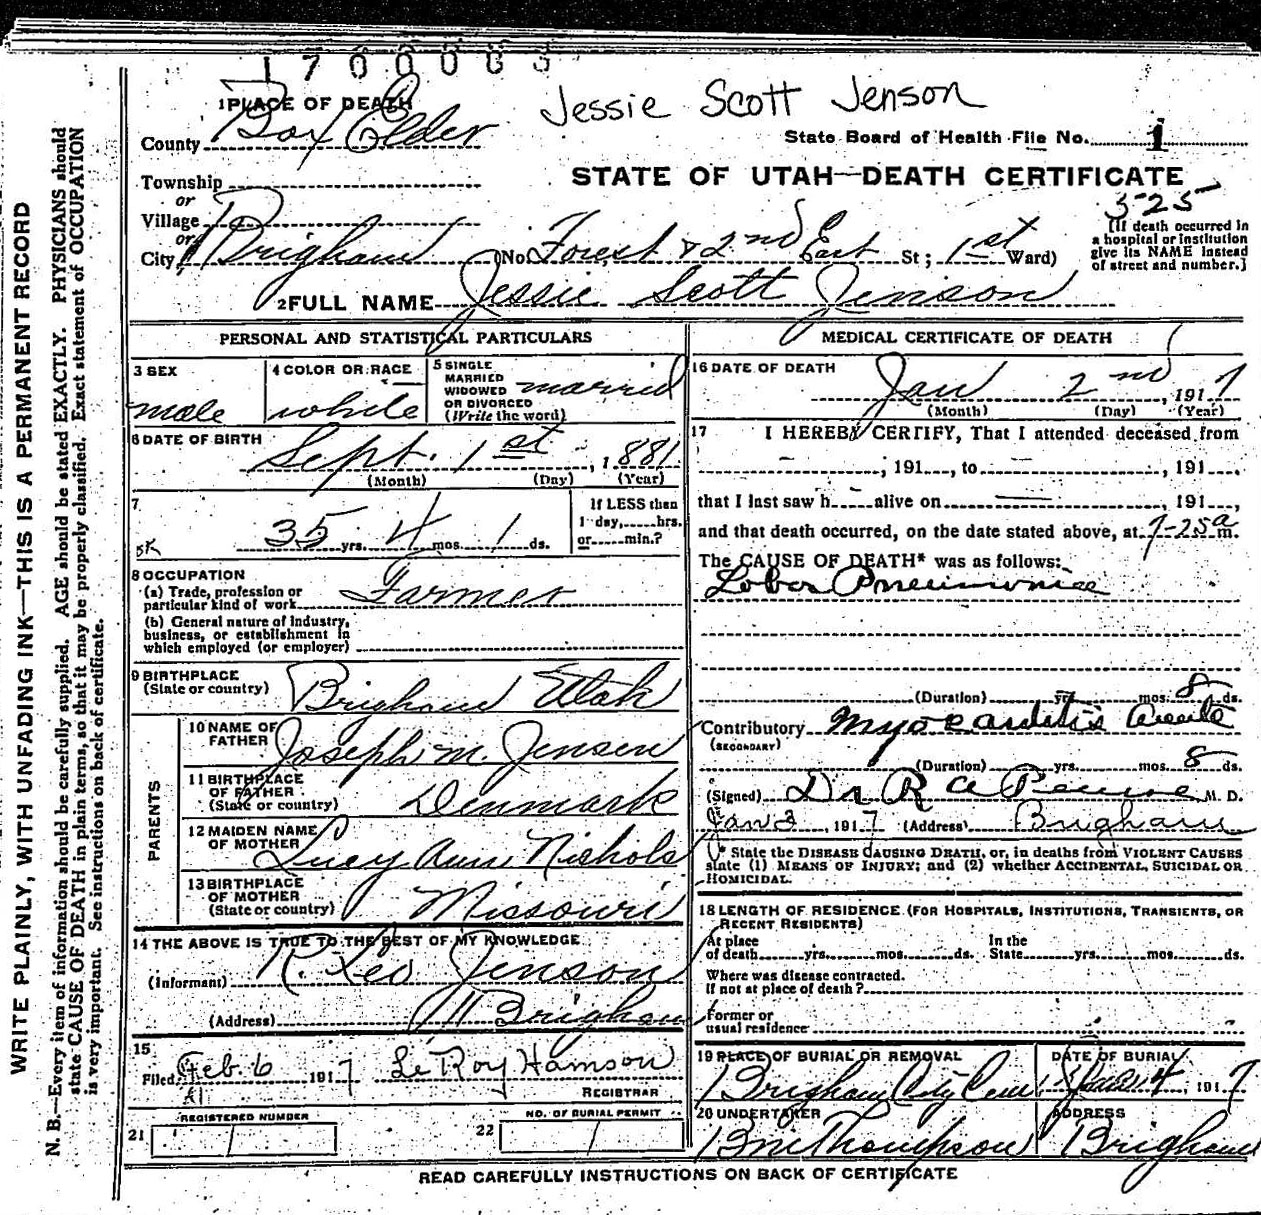 1700003
Jessie Scott Jenson
1 PLACE OF DEATH
County Box Elder
State Board of Health File No. 1
Township
or
STATE OF UTAH—DEATH CERTIFICATE
Village
525
or
City Brigham (No Forest & 2nd East St; 1st Ward)
[If death occurred in
a hospital or institution
give its NAME instead
of street and number.]
2 FULL NAME Jessie Scott Jenson
PERSONAL AND STATISTICAL PARTICULARS
3 SEX
male
4 COLOR OR RACE
white
5 SINGLE
MARRIED
WIDOWED
OR DIVORCED
(Write the word)
married
6 DATE OF BIRTH
Sept. 1st, 1881
(Month) (Day) (Year)
7
35 yrs. 4 mos. 1 ds.
If LESS than
1 day, hrs.
or min.?
8 OCCUPATION
(a) Trade, profession or
particular kind of work Farmer
(b) General nature of Industry,
business, or establishment in
which employed (or employer)
9 BIRTHPLACE
(State or country) Brigham Utah
PARENTS
10 NAME OF
FATHER Joseph M. Jensen
11 BIRTHPLACE
OF FATHER
(State or country) Denmark
12 MAIDEN NAME
OF MOTHER Lucy Ann Nichols
13 BIRTHPLACE
OF MOTHER
(State or country) Missouri
14 THE ABOVE IS TRUE TO THE BEST OF MY KNOWLEDGE
(Informant) R. Leo Jenson
(Address) Brigham
15
Filed Feb. 6 1917 LeRoy Hamson
REGISTRAR
REGISTERED NUMBER
21 1
NO. OF BURIAL PERMIT
22 1
MEDICAL CERTIFICATE OF DEATH
16 DATE OF DEATH
Jan 2nd, 1917
(Month) (Day) (Year)
17 I HEREBY CERTIFY, That I attended deceased from
, 191 , to , 191 .
that I last saw h alive on , 191 ,
and that death occurred, on the date stated above, at 7-25 a m.
The CAUSE OF DEATH* was as follows:
Lobar Pneumonia
(Duration) yrs. mos. 8 ds.
Contributory Myocarditis acute
(SECONDARY)
(Duration) yrs. mos. 8 ds.
(Signed) Dr R A Pearse M. D.
Jan 3, 1917 (Address) Brigham
* State the DISEASE CAUSING DEATH, or, in deaths from VIOLENT CAUSES
state (1) MEANS OF INJURY; and (2) whether ACCIDENTAL, SUICIDAL OR
HOMICIDAL.
18 LENGTH OF RESIDENCE (FOR HOSPITALS, INSTITUTIONS, TRANSIENTS, OR
RECENT RESIDENTS)
At place
of death yrs. mos. ds.
In the
State yrs. mos. ds.
Where was disease contracted.
If not at place of death?
Former or
usual residence
19 PLACE OF BURIAL OR REMOVAL
Brigham City Cem
DATE OF BURIAL
Jan 4, 1917
20 UNDERTAKER
ADDRESS
Brigham
READ CAREFULLY INSTRUCTIONS ON BACK OF CERTIFICATE
WRITE PLAINLY, WITH UNFADING INK—THIS IS A PERMANENT RECORD
N. B.—Every item of information should be carefully supplied. AGE should be stated EXACTLY. PHYSICIANS should
state CAUSE OF DEATH in plain terms, so that it may be properly classified. Exact statement of OCCUPATION
is very important. See instructions on back of certificate.